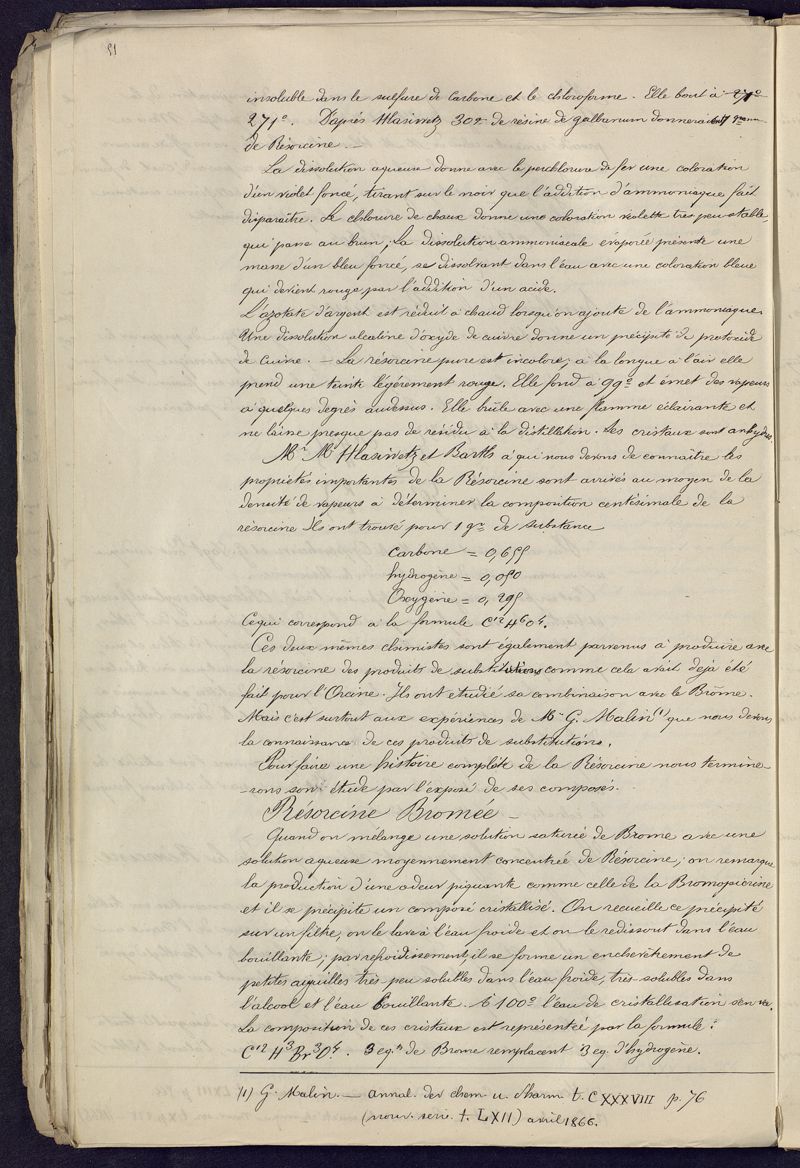 51
insoluble dans le sulfure de Carbone et le chloroforme. Elle bout à 270
271°. D'après Hlasiwetz 30gr de résine de galbanum donneraient
de Résorcine. —
La dissolution aqueuse donne avec le perchlorure de fer une coloration
d'un violet foncé, tirant sur le noir que l'addition d'ammoniaque fait
disparaître. Le chlorure de chaux donne une coloration violette très peu stable,
qui passe au brun; La dissolution ammoniacale évaporée présente une
masse d'un bleu foncé, se dissolvant dans l'eau avec une coloration bleue
qui devient rouge par l'addition d'un acide.
L'azotate d'argent est réduit à chaud lorsqu'on ajoute de l'ammoniaque.
Une dissolution alcaline d'oxyde de cuivre donne un précipité de protoxide
de Cuivre. — La résorcine pure est incolore; à la longue à l'air elle
prend une teinte légèrement rouge. Elle fond à 99° et émet des vapeurs
à quelques degrés audessus. Elle brûle avec une flamme éclairante et
ne laisse presque pas de résidu à la distillation. Ses cristaux sont anhydres.
Mr. Mr Hlasiwetz et Barth à qui nous devons de connaître les
propriétés importantes de la Résorcine sont arrivés au moyen de la
densité de vapeurs à déterminer la composition centésimale de la
résorcine Ils ont trouvé pour 1 gr de substance
Carbone = 0,655
hydrogène = 0,050
Oxygène = 0,295
Ce qui correspond à la formule C12 H6 O4.
Ces deux mêmes chimistes sont également parvenus à produire avec
la résorcine des produits de substitutions comme cela avait dejà été
fait pour l'Orcine. Ils ont etudié sa combinaison avec le Brôme.
Mais c'est surtout aux expériences de Mr G. Malin (1) que nous devons
la connaissance de ces produits de substitutions.
Pour faire une histoire complète de la Résorcine nous termine-
-rons son étude par l'exposé de ses composés.
Résorcine Bromée —
Quand on mélange une solution saturée de Brome avec une
solution aqueuse moyennement concentrée de Résorcine, on remarque
la production d'une odeur piquante comme celle de la Bromopicrine
et il se précipite un composé cristallisé. On recueille ce précipité
sur un filtre, on le lave à l'eau froide et on le redissout dans l'eau
bouillante; par refroidissement, il se forme un enchevêtrement de
petites aiguilles très peu solubles dans l'eau froide, très solubles dans
l'alcool et l'eau bouillante. à 100° l'eau de cristallisation s'en va.
La composition de ces cristaux est représentée par la formule:
C12 H3 Br3 O4. 3 eqts de Brome remplacent 3 eq. d'hydrogène.
(1) G. Malin. — annal. der chem. u. Pharm t. CXXXVIII p. 76
(nouv. serie. t. LXII) avril 1866.